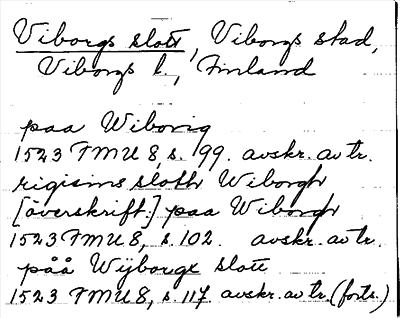 Viborgs slott, Viborgs stad,
Viborgs l., Finland
paa Wiborig
1523 FMU 8, s. 99. avskr. av tr.
rigisins sloth Wiborgh
[överskrift:] paa Wiborgh
1523 FMU 8, s. 102. avskr. av tr.
påå Wÿborge slott
1523 FMU 8, s. 117. avskr. av tr. (forts.)